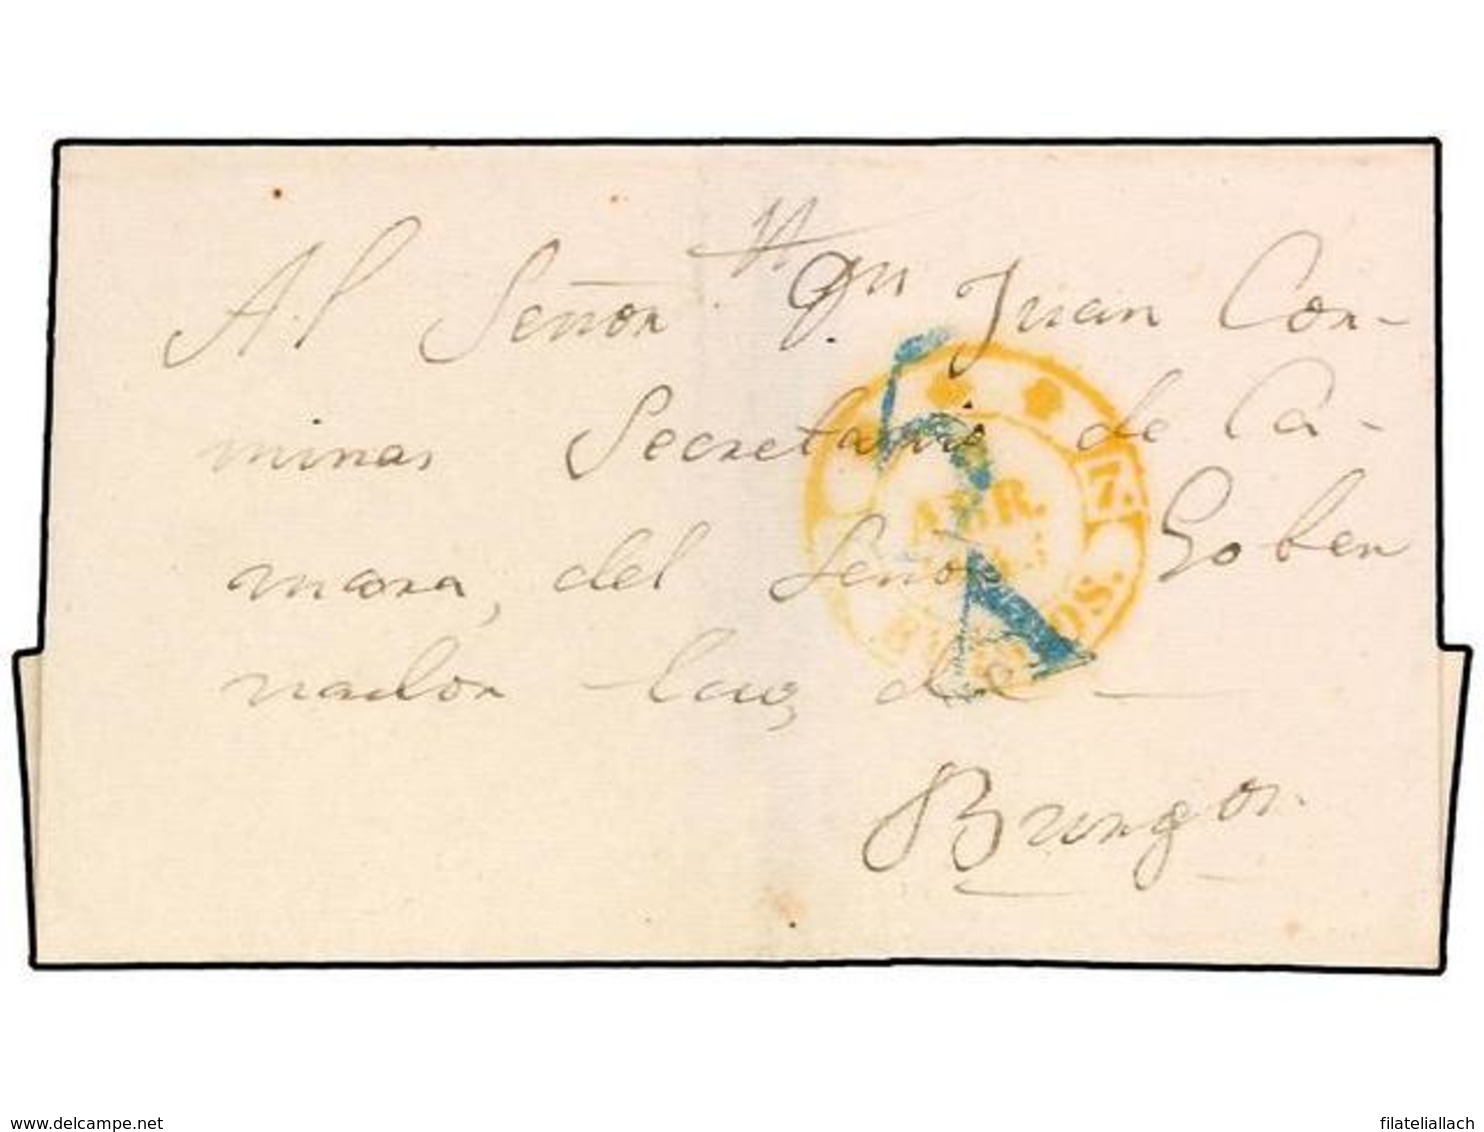 Al Señor Dn Juan Cor-
minas Secretario de Ca-
mara, del Señor Gober
nador de
Burgos.
7.
ABR.
OS.
www.delcampe.net
filateliallach